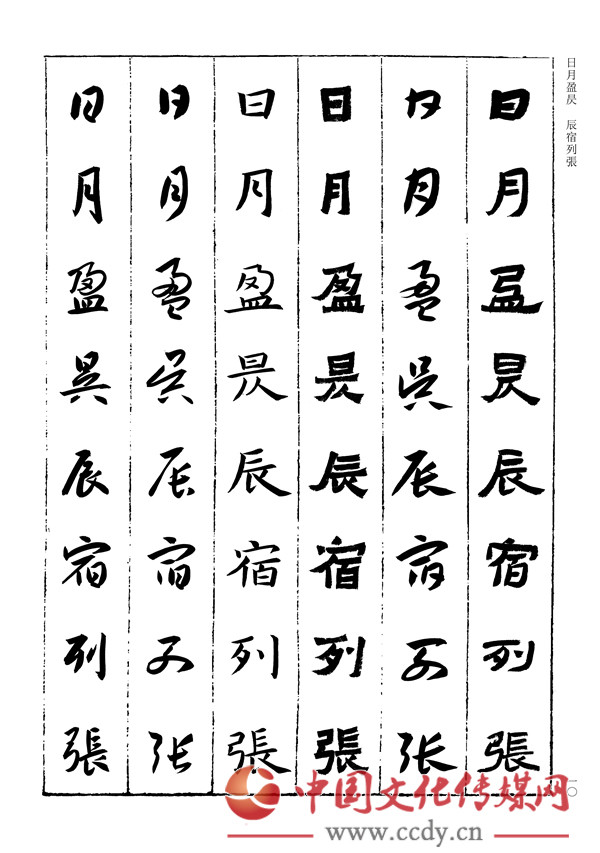 日月盈昃 辰宿列張
日月盈昃辰宿列張
日月盈昃辰宿列張
日月盈昃辰宿列張
日月盈昃辰宿列張
日月盈昃辰宿列張
日月盈昃辰宿列張
一〇
中国文化传媒网
www.ccdy.cn